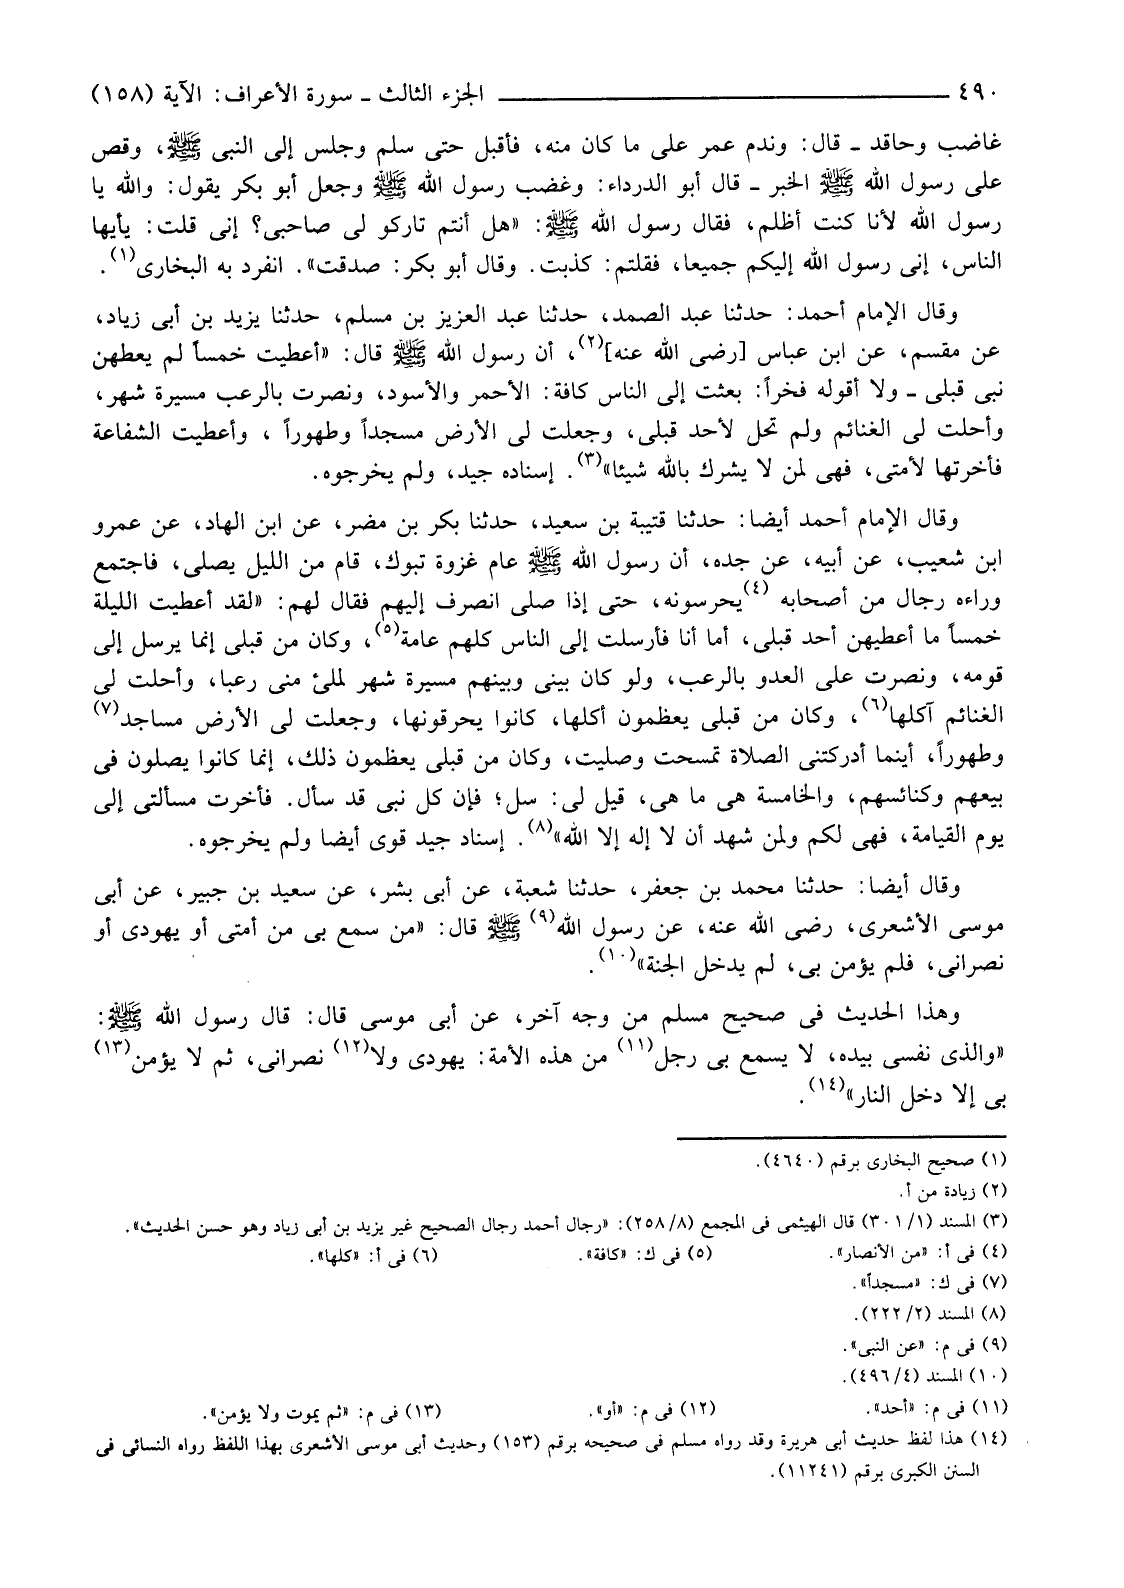 ٤٩٠ ــــــ الجزء الثالث ـ سورة الأعراف: الآية (١٥٨)
غاضب وحاقد ـ قال: وندم عمر على ما كان منه، فأقبل حتى سلم وجلس إلى النبى ﷺ، وقص
على رسول الله ﷺ الخبر ـ قال أبو الدرداء: وغضب رسول الله ﷺ وجعل أبو بكر يقول: والله يا
رسول الله لأنا كنت أظلم، فقال رسول الله ﷺ: «هل أنتم تاركو لى صاحبى؟ إنى قلت: يأيها
الناس، إنى رسول الله إليكم جميعا، فقلتم: كذبت. وقال أبو بكر: صدقت». انفرد به البخارى(١).
وقال الإمام أحمد: حدثنا عبد الصمد، حدثنا عبد العزيز بن مسلم، حدثنا يزيد بن أبى زياد،
عن مقسم، عن ابن عباس [رضى الله عنه](٢)، أن رسول الله ﷺ قال: «أعطيت خمساً لم يعطهن
نبى قبلى ـ ولا أقوله فخراً: بعثت إلى الناس كافة: الأحمر والأسود، ونصرت بالرعب مسيرة شهر،
وأحلت لى الغنائم ولم تحل لأحد قبلى، وجعلت لى الأرض مسجداً وطهوراً ، وأعطيت الشفاعة
فأخرتها لأمتى، فهى لمن لا يشرك بالله شيئا»(٣). إسناده جيد، ولم يخرجوه.
وقال الإمام أحمد أيضا: حدثنا قتيبة بن سعيد، حدثنا بكر بن مضر، عن ابن الهاد، عن عمرو
ابن شعيب، عن أبيه، عن جده، أن رسول الله ﷺ عام غزوة تبوك، قام من الليل يصلى، فاجتمع
وراءه رجال من أصحابه (٤)يحرسونه، حتى إذا صلى انصرف إليهم فقال لهم: «لقد أعطيت الليلة
خمساً ما أعطيهن أحد قبلى، أما أنا فأرسلت إلى الناس كلهم عامة(٥)، وكان من قبلى إنما يرسل إلى
قومه، ونصرت على العدو بالرعب، ولو كان بينى وبينهم مسيرة شهر لملئ منى رعبا، وأحلت لى
الغنائم آكلها(٦)، وكان من قبلى يعظمون أكلها، كانوا يحرقونها، وجعلت لى الأرض مساجد(٧)
وطهوراً، أينما أدركتنى الصلاة تمسحت وصليت، وكان من قبلى يعظمون ذلك، إنما كانوا يصلون فى
بيعهم وكنائسهم، والخامسة هى ما هى، قيل لى: سل؛ فإن كل نبى قد سأل. فأخرت مسألتى إلى
يوم القيامة، فهى لكم ولمن شهد أن لا إله إلا الله»(٨). إسناد جيد قوى أيضا ولم يخرجوه.
وقال أيضا: حدثنا محمد بن جعفر، حدثنا شعبة، عن أبى بشر، عن سعيد بن جبير، عن أبى
موسى الأشعرى، رضى الله عنه، عن رسول الله(٩) ﷺ قال: «من سمع بى من أمتى أو يهودى أو
نصرانى، فلم يؤمن بى، لم يدخل الجنة»(١٠).
وهذا الحديث فى صحيح مسلم من وجه آخر، عن أبى موسى قال: قال رسول الله ﷺ:
«والذى نفسى بيده، لا يسمع بى رجل(١١) من هذه الأمة: يهودى ولا(١٢) نصرانى، ثم لا يؤمن(١٣)
بى إلا دخل النار»(١٤).
(١) صحيح البخارى برقم (٤٦٤٠).
(٢) زيادة من أ.
(٣) المسند (٣٠١/١) قال الهيثمى فى المجمع (٢٥٨/٨): «رجال أحمد رجال الصحيح غير يزيد بن أبى زياد وهو حسن الحديث».
(٤) فى أ: «من الأنصار». (٥) فى ك: «كافة». (٦) فى أ: «كلها».
(٧) فى ك: «مسجداً».
(٨) المسند (٢٢٢/٢).
(٩) فى م: «عن النبى».
(١٠) المسند (٤٩٦/٤).
(١١) فى م: «أحد». (١٢) فى م: «أو». (١٣) فى م: «ثم يموت ولا يؤمن».
(١٤) هذا لفظ حديث أبى هريرة وقد رواه مسلم فى صحيحه برقم (١٥٣) وحديث أبى موسى الأشعرى بهذا اللفظ رواه النسائى فى
السنن الكبرى برقم (١١٢٤١).